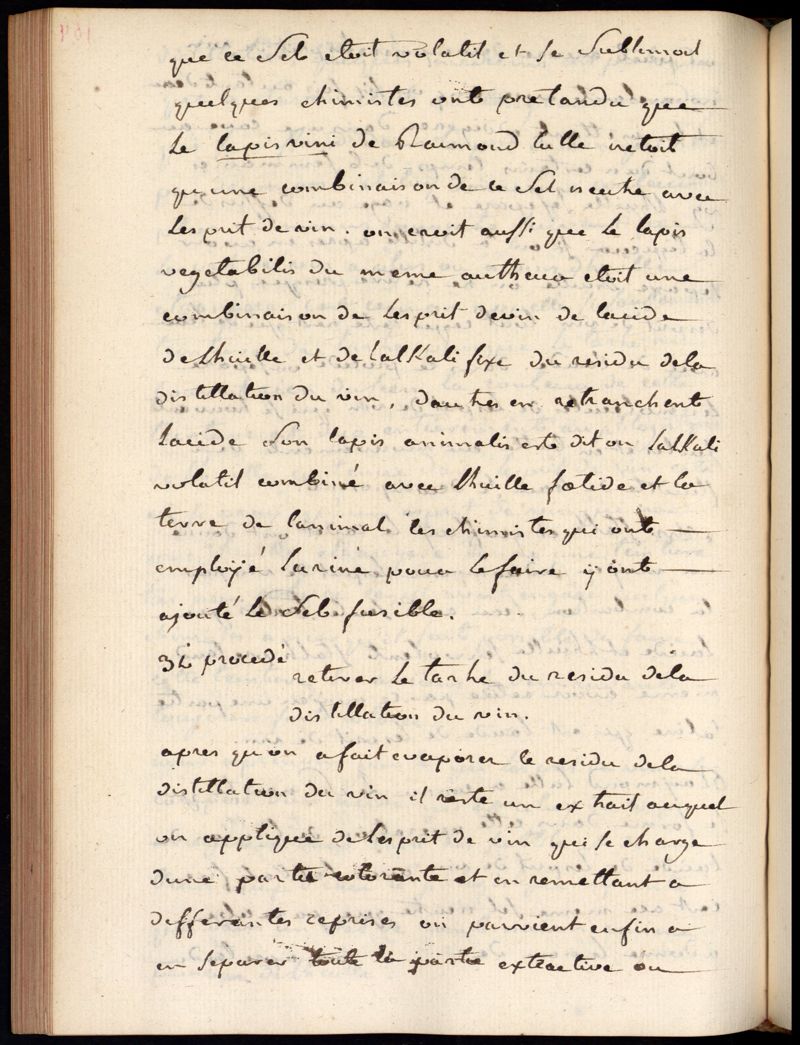 que ce Sel etoit volatil et se Sublimoit
quelques chimistes ont pretandu que
Le lapis vini de Raimond lulle netoit
qu'une combinaison de ce Sel neutre avec
Lesprit de vin. on croit aussi que Le lapis
vegetabilis du meme autheur etoit une
combinaison de Lesprit de vin de lacide
de Lhuille et de Lalkali fixe du residu dela
distillation du vin, dautres en retranchent
Lacide Son lapis animalis est dit on Lalkali
volatil combiné avec Lhuille fœtide et la
terre de lanimal les chimistes qui ont
employé Lurine pour le faire y ont
ajouté Le Sel fusible.
3e procedé
retirer Le tartre du residu dela
distillation du vin.
apres qu'on a fait evaporer le residu dela
distillation du vin il reste un extrait auquel
on applique de Lesprit de vin qui Se charge
dune partie colorante et en remettant a
differantes reprises on parvient enfin a
en Separer toute la partie extractive ou